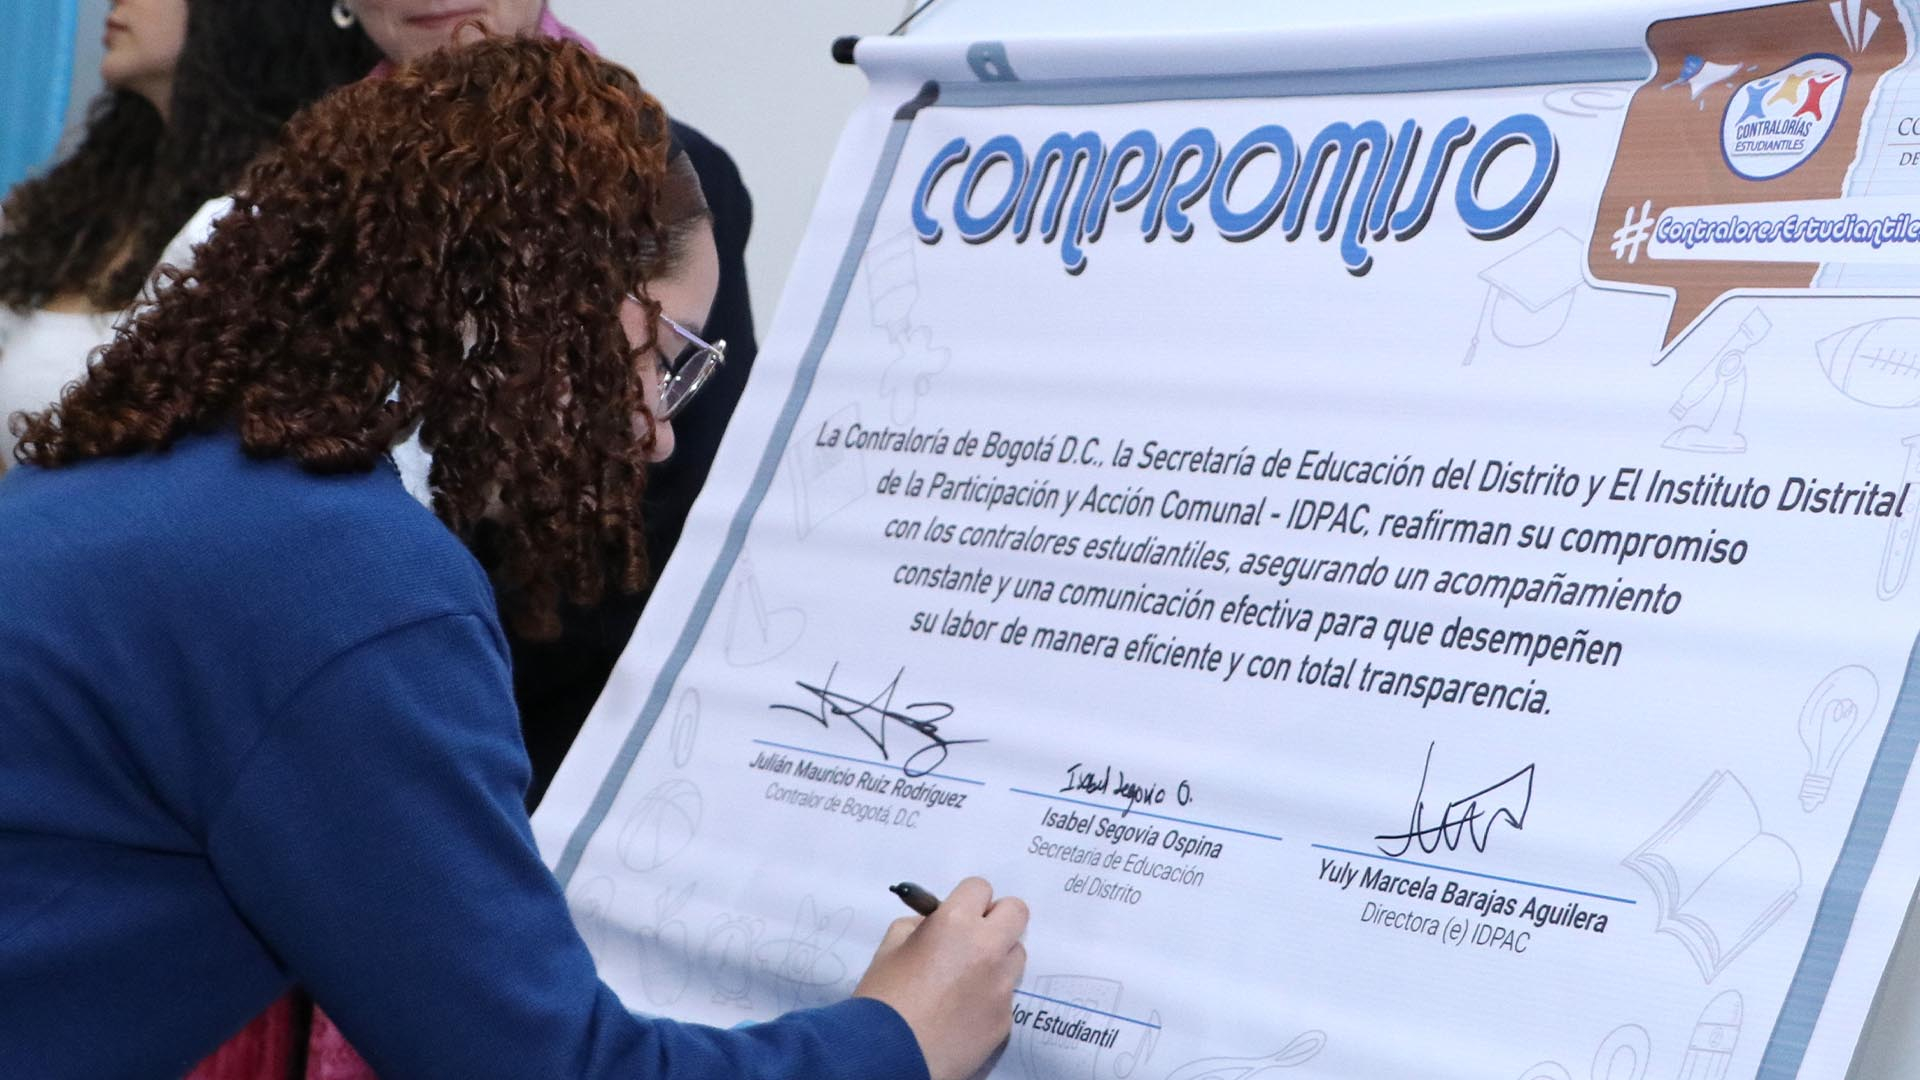 COMPROMISO
CONTRALORÍAS
ESTUDIANTILES
#ContraloresEstudiantile
CO
DE
La Contraloría de Bogotá D.C., la Secretaría de Educación del Distrito y El Instituto Distrital
de la Participación y Acción Comunal - IDPAC, reafirman su compromiso
con los contralores estudiantiles, asegurando un acompañamiento
constante y una comunicación efectiva para que desempeñen
su labor de manera eficiente y con total transparencia.
Julián Mauricio Ruiz Rodríguez
Contralor de Bogotá, D.C.
Isabel Segovia O.
Isabel Segovia Ospina
Secretaria de Educación
del Distrito
Yuly Marcela Barajas Aguilera
Directora (e) IDPAC
lor Estudiantil